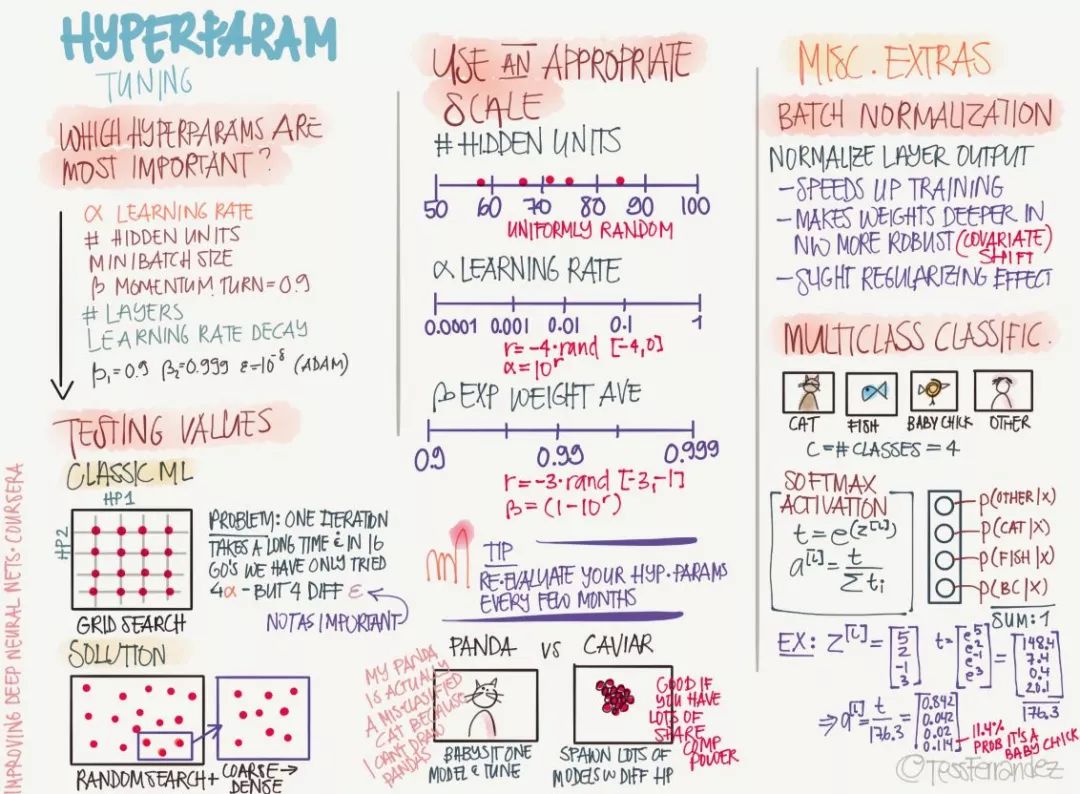 HYPERPARAM
TUNING
WHICH HYPERPARAMS ARE
MOST IMPORTANT?
α LEARNING RATE
# HIDDEN UNITS
MINIBATCH SIZE
β MOMENTUM TURN=0.9
# LAYERS
LEARNING RATE DECAY
β₁=0.9 β₂=0.999 ε=10⁻⁸ (ADAM)
TESTING VALUES
CLASSIC ML
HP1
HP2
GRID SEARCH
PROBLEM: ONE ITERATION
TAKES A LONG TIME & IN 16
GO'S WE HAVE ONLY TRIED
4α - BUT 4 DIFF ε
NOT AS IMPORTANT
SOLUTION
RANDOM SEARCH +
COARSE→
DENSE
IMPROVING DEEP NEURAL NETS · COURSERA
USE AN APPROPRIATE
SCALE
# HIDDEN UNITS
50 60 70 80 90 100
UNIFORMLY RANDOM
α LEARNING RATE
0.0001 0.001 0.01 0.1 1
r=-4·rand [-4,0]
α=10^r
β EXP WEIGHT AVE
0.9 0.99 0.999
r=-3·rand [-3,-1]
β=(1-10^r)
TIP
RE-EVALUATE YOUR HYP.PARAMS
EVERY FEW MONTHS
PANDA VS CAVIAR
MY PANDA
IS ACTUALLY
A MISCLASSIFIED
CAT BECAUSE
I CAN'T DRAW
PANDAS
BABYSIT ONE
MODEL & TUNE
GOOD IF
YOU HAVE
LOTS OF
SHARE
COMP
POWER
SPAWN LOTS OF
MODELS W DIFF HP
MISC. EXTRAS
BATCH NORMALIZATION
NORMALIZE LAYER OUTPUT
- SPEEDS UP TRAINING
- MAKES WEIGHTS DEEPER IN
NW MORE ROBUST (COVARIATE)
SHIFT
- SLIGHT REGULARIZING EFFECT
MULTICLASS CLASSIFIC.
CAT FISH BABY CHICK OTHER
C=# CLASSES = 4
SOFTMAX
ACTIVATION
t=e^(z^[L])
a^[L]=t/∑tᵢ
P(OTHER|X)
P(CAT|X)
P(FISH|X)
P(BC|X)
SUM: 1
EX: Z^[L]=[5 2 -1 3] t=[e^5 e^2 e^-1 e^3]=[148.4 7.4 0.4 20.1]
176.3
⇒a^[L]=t/176.3=[0.842 0.042 0.02 0.114]
11.4%
PROB IT'S A
BABY CHICK
©TESSFERRANDEZ